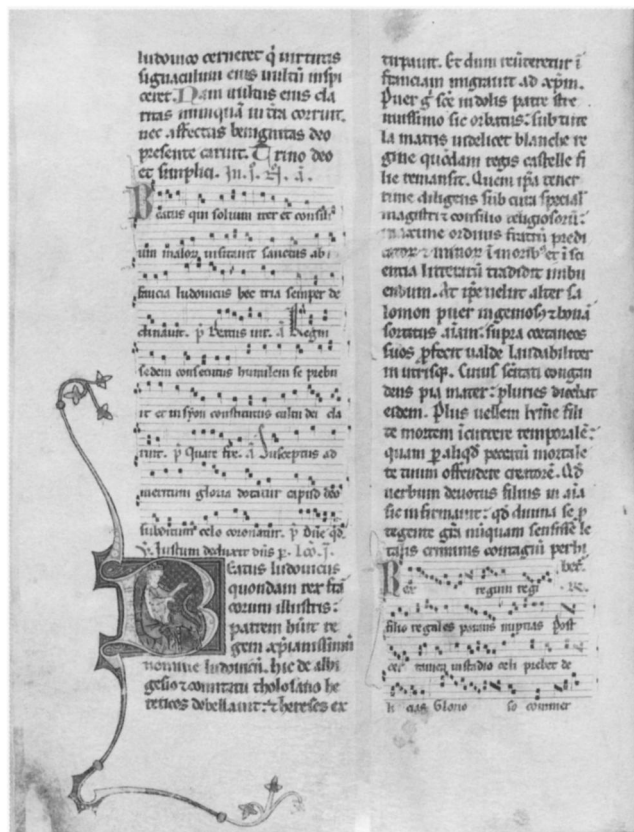 ludovico cerneret q̄ virtutis
signaculum eius vultū inspi
ceret. Nam vultus eius cla
ritas nunquā in t̄ra corruit.
nec affectus benignitas deo
presente caruit. Trino deo
et simplici. In. j. N̄. ā.
Beatus qui solium iter et consili
um malor visitavit sanctus ab i
fancia ludovicus hec tria semper de
clinavit. p̄ Beatus vir. ā Regni
sedem consecutus humilem se prebu
it et in syon constitutus cultū dei cla
ruit. p̄ Quare fre. ā Susceptus ad
meritum gloria dotatur capud deo
subditum celo coronatur. p̄ Dn̄e qd̄.
V. Justum deduxit dn̄s p. Lc̄o. j.
Beatus ludovicus
quondam rex frā
corum illustris:
patrem h̄uit re
gem xp̄ianissimū
nomine ludovicū. hic de albi
gesio ⁊ comitatu tholosano he
reticos debellavit: ⁊ hereses ex
tirpavit. Et dum reūteretur ī
franciam migravit ad xp̄m.
Puer g̊ sc̄e indolis patre stre
nuissimo sic orbatus: sub tute
la matris videlicet blanche re
gine quōdam regis castelle fi
lie remansit. Quem ip̄a tener
rime diligens sub cura speciali
magistri ⁊ consilio religiosorū:
maxime ordinis fratrū predi
cator ⁊ minor ī morib⁹ et ī sci
entia litteratū tradidit imbu
endum. At ip̄e velut alter sa
lomon puer ingenios⁹ ⁊ bonā
sortitus aīam: supra coetaneos
suos p̄fecit valde laudabiliter
in utrisq̨. Cuius sc̄itati congau
dens pia mater: pluries dicebat
eidem. Plus vellem kr̄me fili
te mortem īcurrere temporalē:
quam p̱ aliqd̄ peccatū mortale
te tuum offendere creatorē. Qd̄
verbum devotus filius in aīa
sic infirmavit: qd̄ divina se p̱
tegente gr̄a nūquam sensisse le
talis criminis contagiū perhi
betur.
Rex regum regi
filio regales parans nuptias Post
cer mina in stadio celi prebet de
li cias Glorio so commer